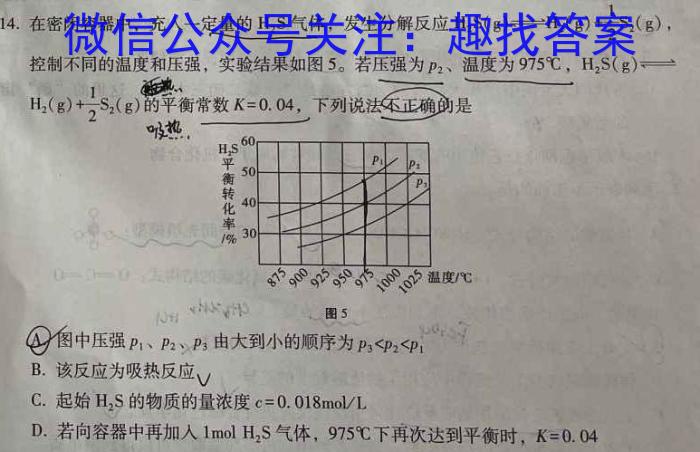 14. 在密 容器中，充入一定量的H₂S气体，发生分解反应H₂S(g)⇌H₂(g)+½S₂(g)，
微信公众号关注：趣找答案
控制不同的温度和压强，实验结果如图5。若压强为p₂、温度为975℃，H₂S(g)⇌
H₂(g)+½S₂(g)的平衡常数K=0.04，下列说法不正确的是
吸热.
H₂S平衡转化率/%
60
50
40
30
p₁
p₂
p₃
875 900 925 950 975 1000 1025 温度/℃
图5
A. 图中压强p₁、p₂、p₃由大到小的顺序为p₃<p₂<p₁
B. 该反应为吸热反应
C. 起始H₂S的物质的量浓度c=0.018mol/L
D. 若向容器中再加入1mol H₂S气体，975℃下再次达到平衡时，K=0.04